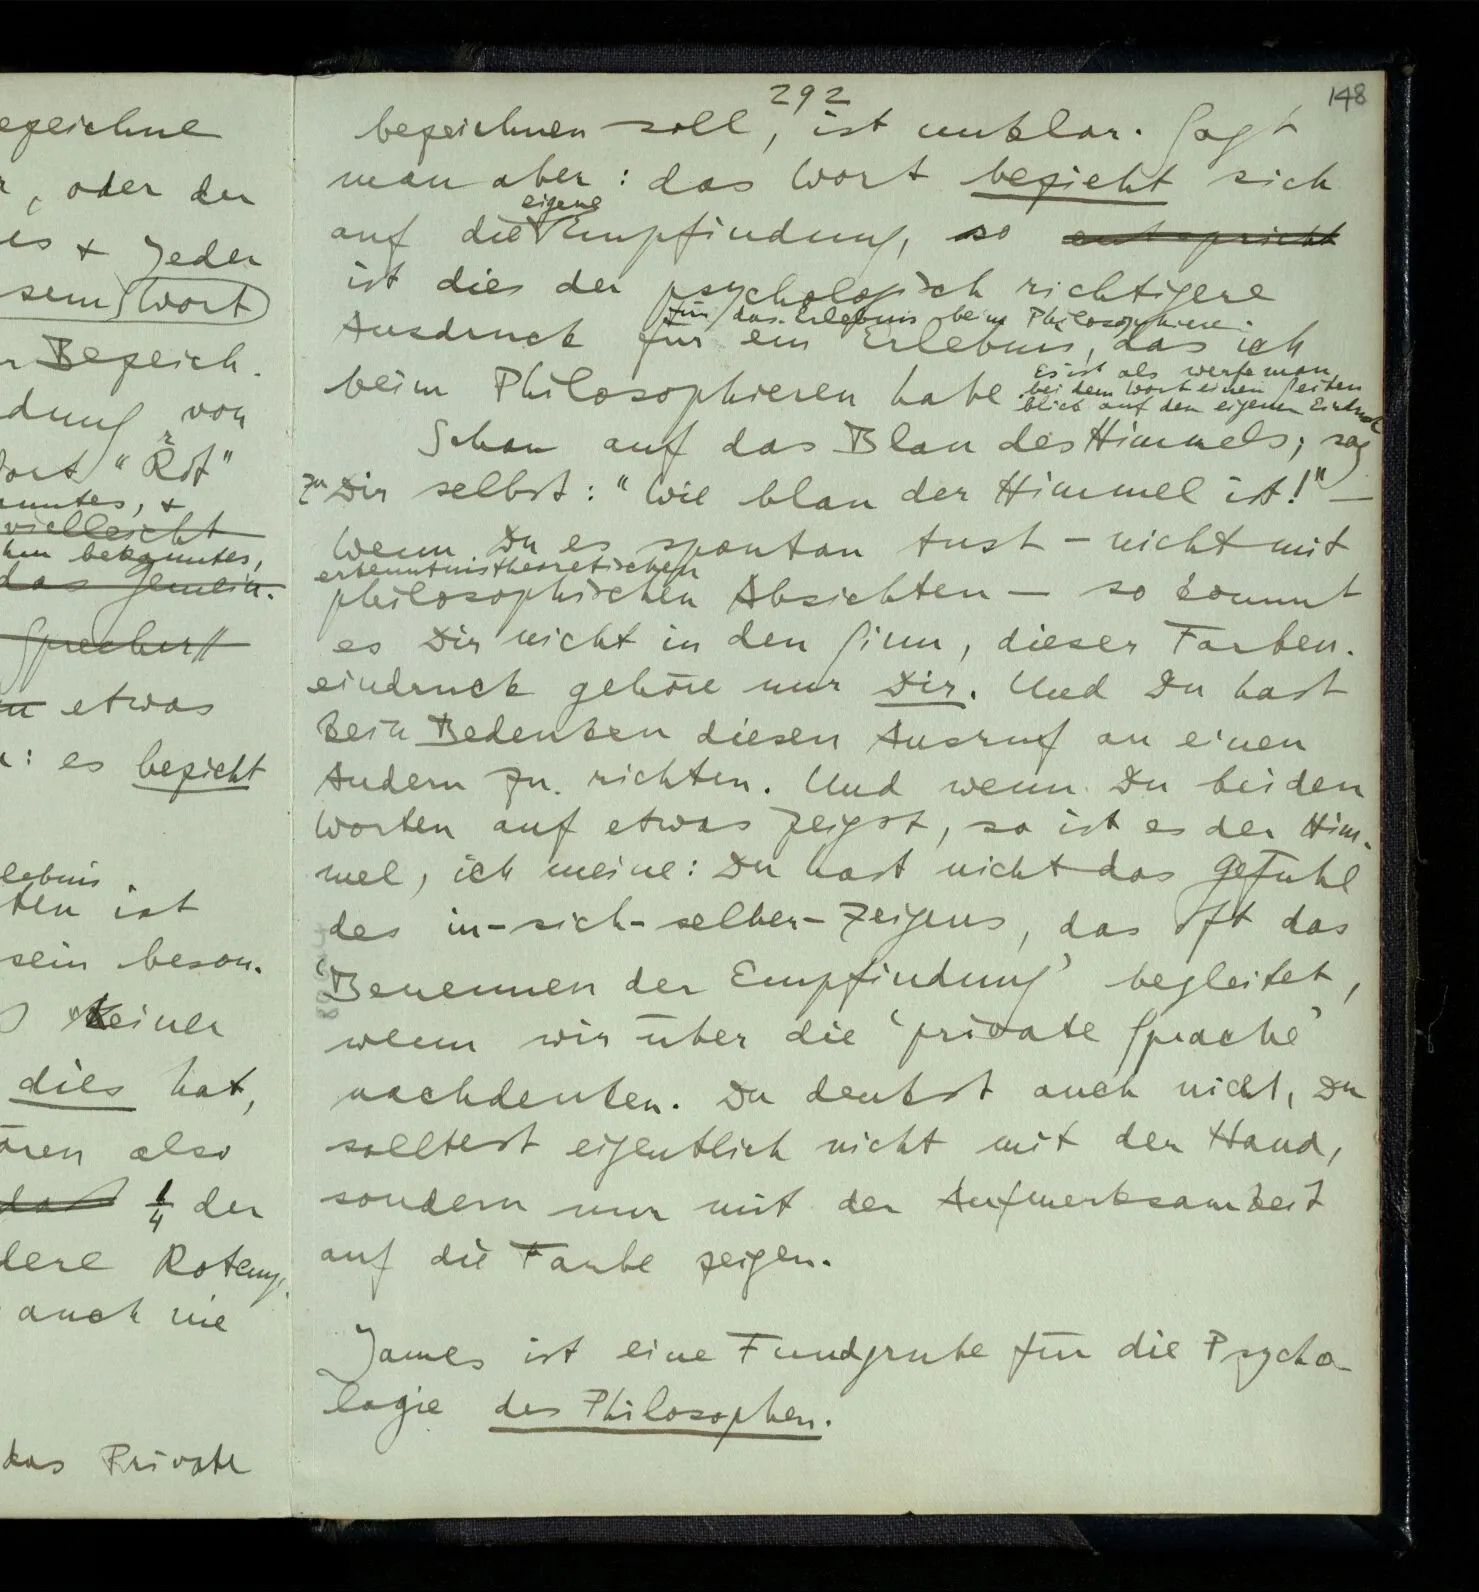 egeichne
, oder der
es + Jeder
sem Wort
n Bezeich.
dung von
Wort "Rot"
anntes, +
vielleicht
hm bekanntes,
das Gemein-
Sprecher//
etwas
: es bezieht
lebnis.
ten ist
sein beson-
keiner
dies hat,
ören also
das 1/4 der
dere Rotemp.
auch nie
das Private
292
148
bezeichnen soll, ist unklar. Sagt
man aber: das Wort bezieht sich
eigene
auf die Empfindung, so entspricht
ist dies der psychologisch richtigere
für das Erlebnis beim Philosophieren.
Ausdruck für ein Erlebnis, das ich
beim Philosophieren habe
Es ist als werfe man
bei dem Wort einen Seiten
blick auf den eigenen Eindruck
Schau auf das Blau des Himmels; sag
zu Dir selbst: "Wie blau der Himmel ist!" –
Wenn Du es spontan tust – nicht mit
erkenntnistheoretischen
philosophischen Absichten – so kommt
es Dir nicht in den Sinn, dieser Farben-
eindruck gehöre nur Dir. Und Du hast
kein Bedenken diesen Ausruf an einen
Andern zu richten. Und wenn Du bei den
Worten auf etwas zeigst, so ist es der Him-
mel, ich meine: Du hast nicht das Gefühl
des in-sich-selber-Zeigens, das oft das
'Benennen der Empfindung' begleitet,
wenn wir über die 'private Sprache'
nachdenken. Du denkst auch nicht, Du
solltest eigentlich nicht mit der Hand,
sondern nur mit der Aufmerksamkeit
auf die Farbe zeigen.
James ist eine Fundgrube für die Psycho-
logie des Philosophen.